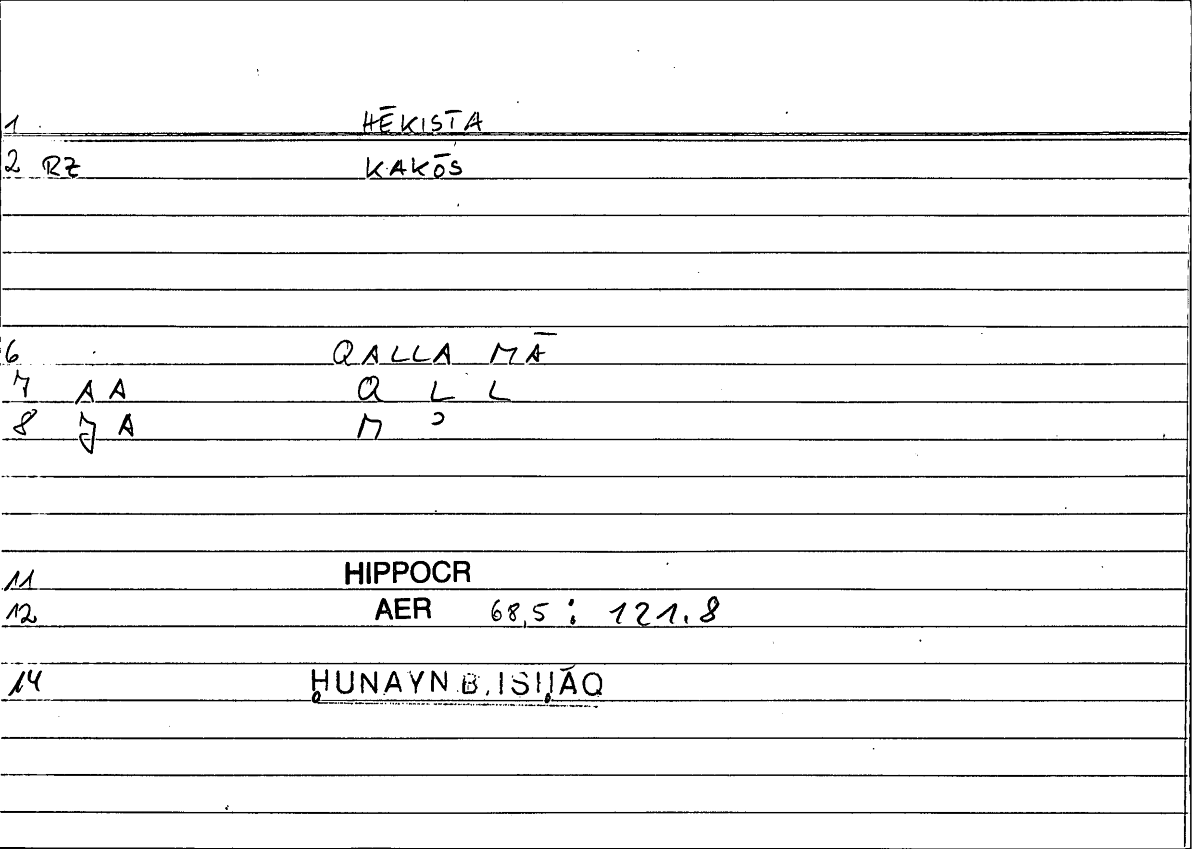 1 HĒKISTA
2 RZ KAKŌS
6 QALLA MĀ
7 AA Q L L
8 JA M ʾ
11 HIPPOCR
12 AER 68,5 : 121.8
14 ḤUNAYN B. ISḤĀQ